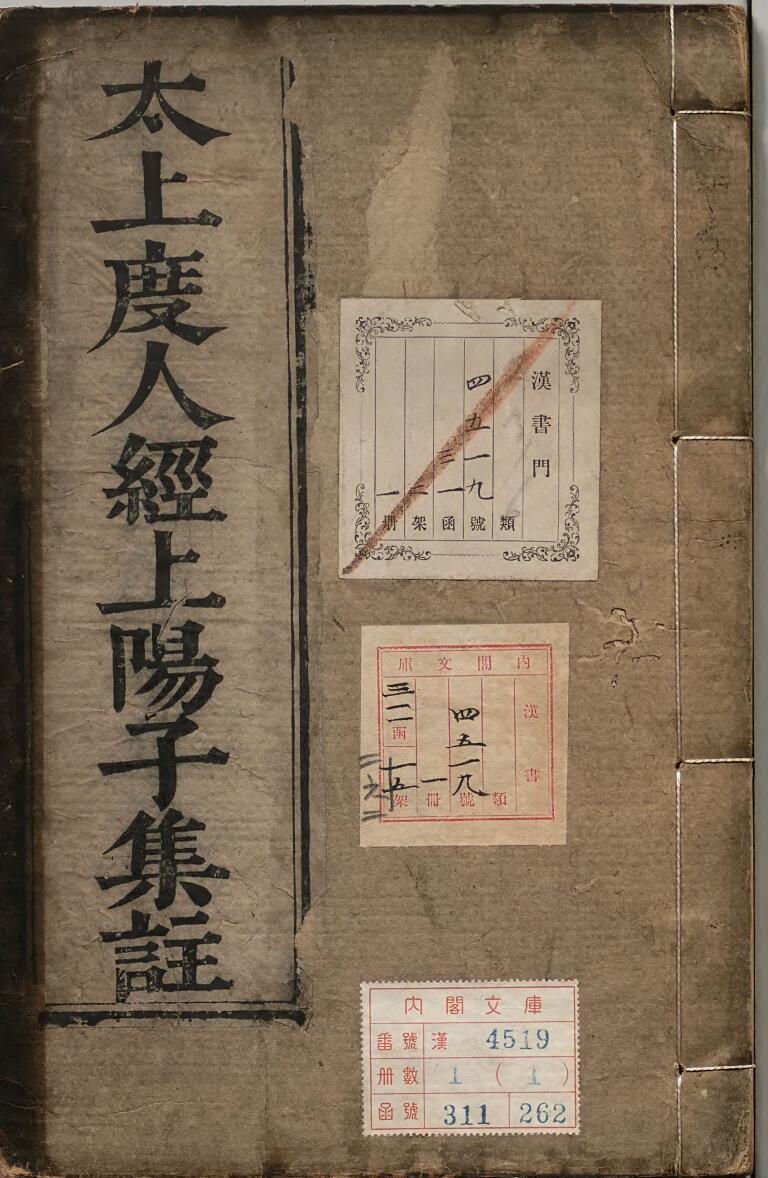 太上度人經上陽子集註
漢書門
類
四五一九號
三一函
二架
一册
内閣文庫
漢書
類
四五一九號
一冊
三一一函
一五架
内閣文庫
番號 漢 4519
册數 1 ( 1 )
函號 311 262